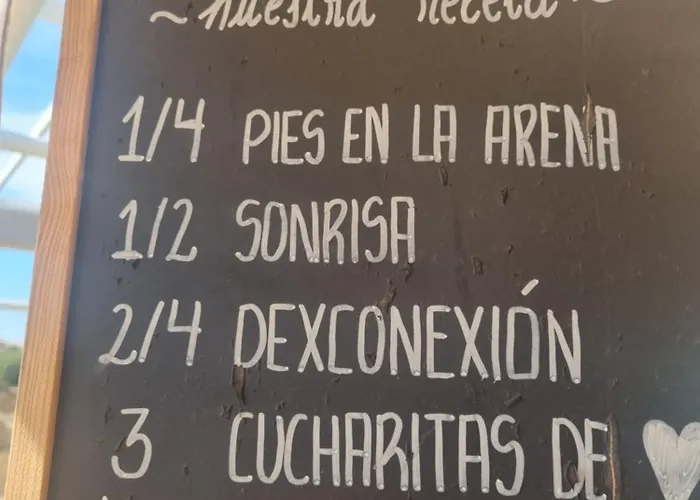 ~ nuestra receta
1/4 PIES EN LA ARENA
1/2 SONRISA
2/4 DEXCONEXIÓN
3 CUCHARITAS DE ♥